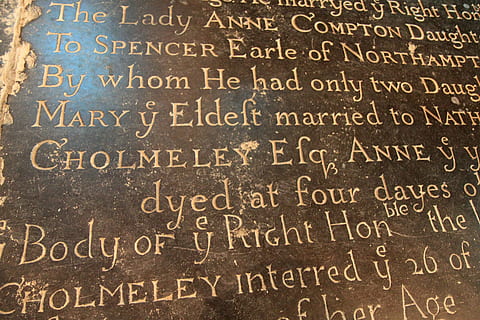 He marryed yͤ Right Hon
The Lady ANNE COMPTON Daught
To SPENCER Earle of NORTHAMPT
By whom He had only two Daug
MARY yͤ Eldeſt married to NATH
CHOLMELEY Eſqꝫ ANNE yͤ y
dyed at four dayes ol
yͤ Body OF yͤ Right Honble the l
CHOLMELEY interred yͤ 26 of
of her Age